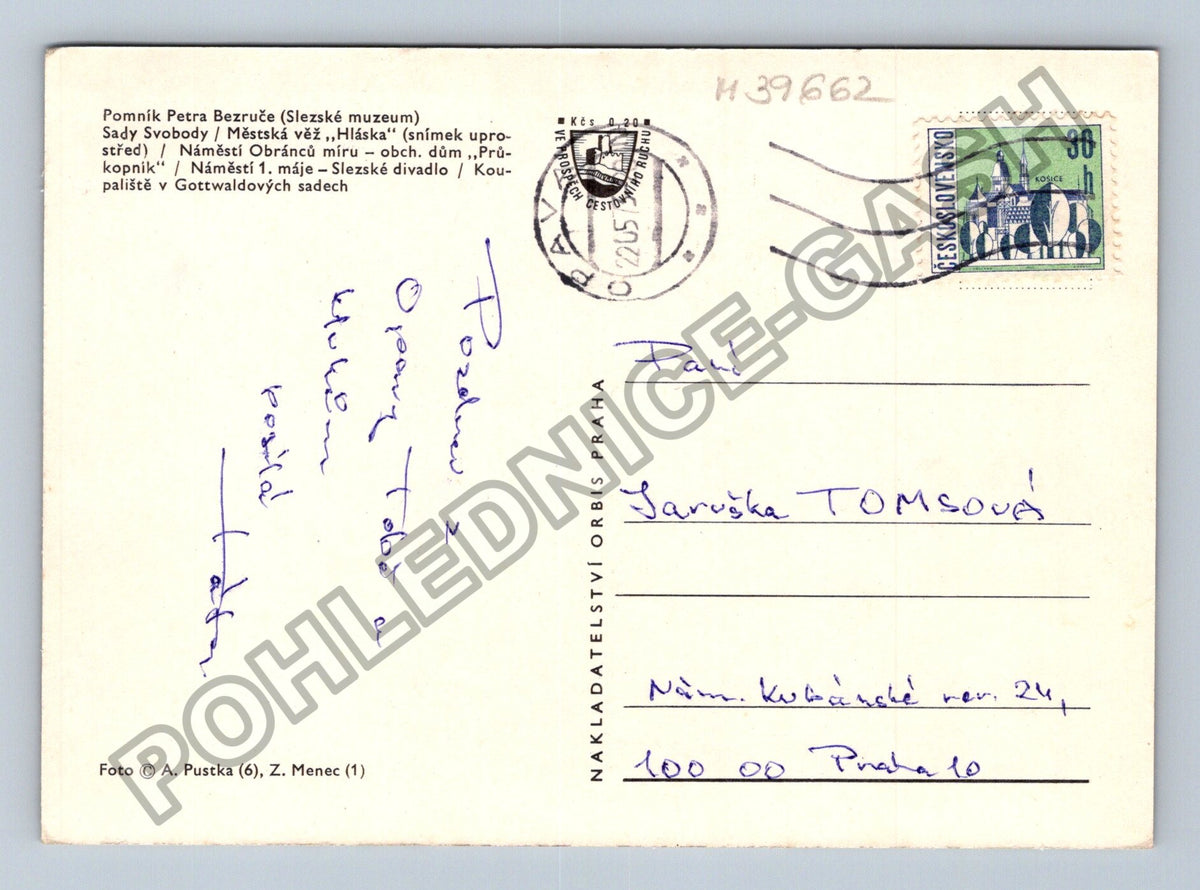 Pomník Petra Bezruče (Slezské muzeum)
Sady Svobody / Městská věž „Hláska“ (snímek upro-
střed) / Náměstí Obránců míru – obch. dům „Prů-
kopník“ / Náměstí 1. máje – Slezské divadlo / Kou-
paliště v Gottwaldových sadech
H 39662
Kčs 0,20
VE PROSPĚCH CESTOVNÍHO RUCHU
OPAVA
22
ČESKOSLOVENSKO
30
h
KOŠICE
Pozdrav z
Opavy Tobě a
klukům
posílá
Táta
Paní
Jaruška TOMSOVÁ
Nám. Kubánské rev. 24,
100 00 Praha 10
NAKLADATELSTVÍ ORBIS PRAHA
Foto © A. Pustka (6), Z. Menec (1)
POHLEDNICE-GASH